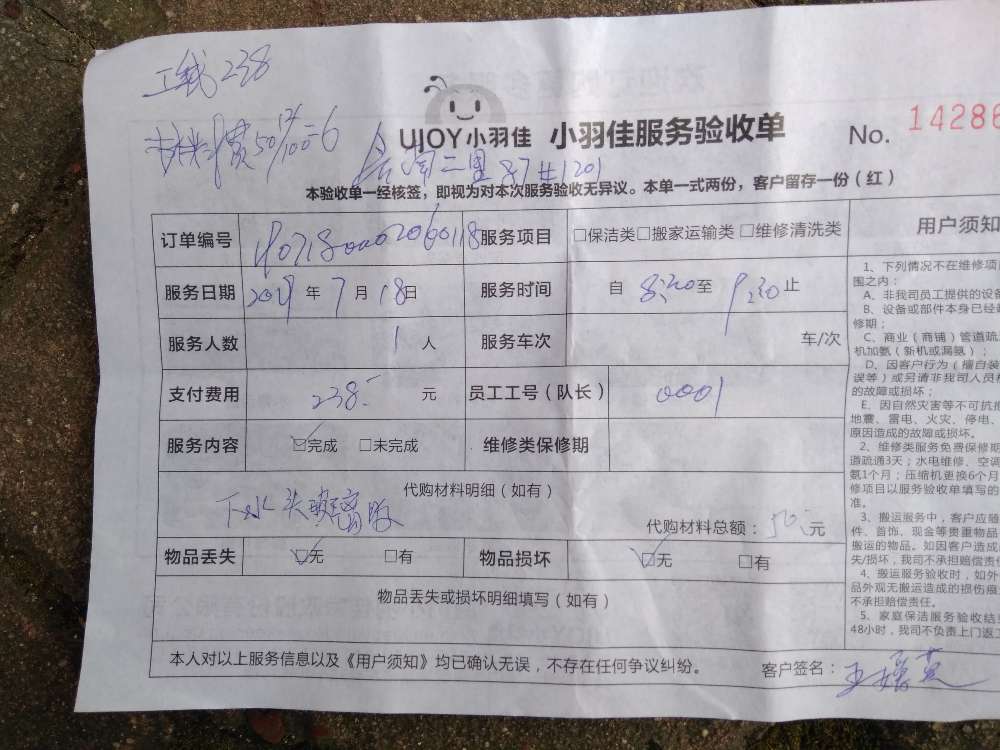 工钱238
材料费50
UJOY小羽佳 小羽佳服务验收单 No. 14286
二里87#1201
本验收单一经核签，即视为对本次服务验收无异议。本单一式两份，客户留存一份（红）
订单编号 服务项目 □保洁类□搬家运输类□维修清洗类
服务日期 2019年7月18日 服务时间 自 8:30至 9:30止
服务人数 1人 服务车次 车/次
支付费用 238.- 元 员工工号（队长） 0001
服务内容 ☑完成 □未完成 维修类保修期
代购材料明细（如有）
下水头玻离胶
代购材料总额：50.-元
物品丢失 ☑无 □有 物品损坏 ☑无 □有
物品丢失或损坏明细填写（如有）
本人对以上服务信息以及《用户须知》均已确认无误，不存在任何争议纠纷。 客户签名：
用户须知
1、下列情况不在维修项
围之内：
A、非我司员工提供的设备
B、设备或部件本身已经
修期；
C、商业（商铺）管道疏
机加氨（新机或漏氨）；
D、因客户行为（擅自装
误等）或另请非我司人员
的故障或损坏；
E、因自然灾害等不可抗
地震、雷电、火灾、停电、
原因造成的故障或损坏。
2、维修类服务免费保修期
道疏通3天；水电维修、空调
氨1个月；压缩机更换6个月
修项目以服务验收单填写的
准。
3、搬运服务中，客户应随
件、首饰、现金等贵重物品
搬运的物品。如因客户造成
失/损坏，我司不承担赔偿责
4、搬运服务验收时，如外
品外观无搬运造成的损伤痕
不承担赔偿责任。
5、家庭保洁服务验收结
48小时，我司不负责上门返工